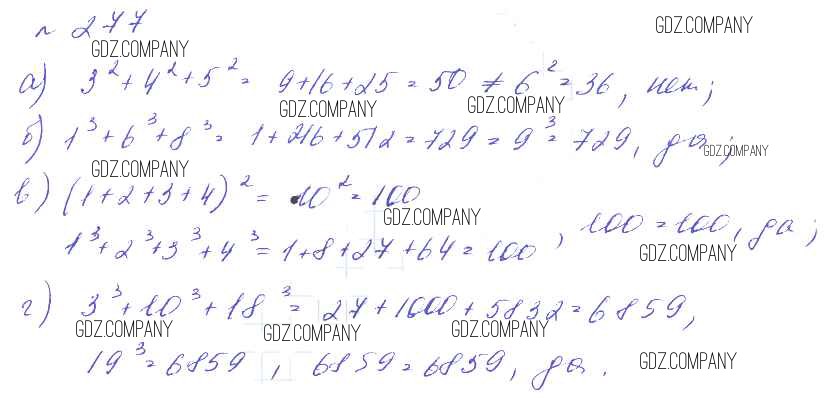 № 277
GDZ.COMPANY
GDZ.COMPANY
а) 3² + 4² + 5² = 9+16+25 = 50 ≠ 6² = 36, нет;
GDZ.COMPANY
GDZ.COMPANY
б) 1³ + 6³ + 8³ = 1 + 216 + 512 = 729 = 9³ = 729, да;
GDZ.COMPANY
GDZ.COMPANY
в) (1+2+3+4)² = 10² = 100
GDZ.COMPANY
1³ + 2³ + 3³ + 4³ = 1+8+27+64 = 100, 100 = 100, да;
GDZ.COMPANY
г) 3³ + 10³ + 18³ = 27 + 1000 + 5832 = 6859,
GDZ.COMPANY
GDZ.COMPANY
GDZ.COMPANY
19³ = 6859, 6859 = 6859, да.
GDZ.COMPANY